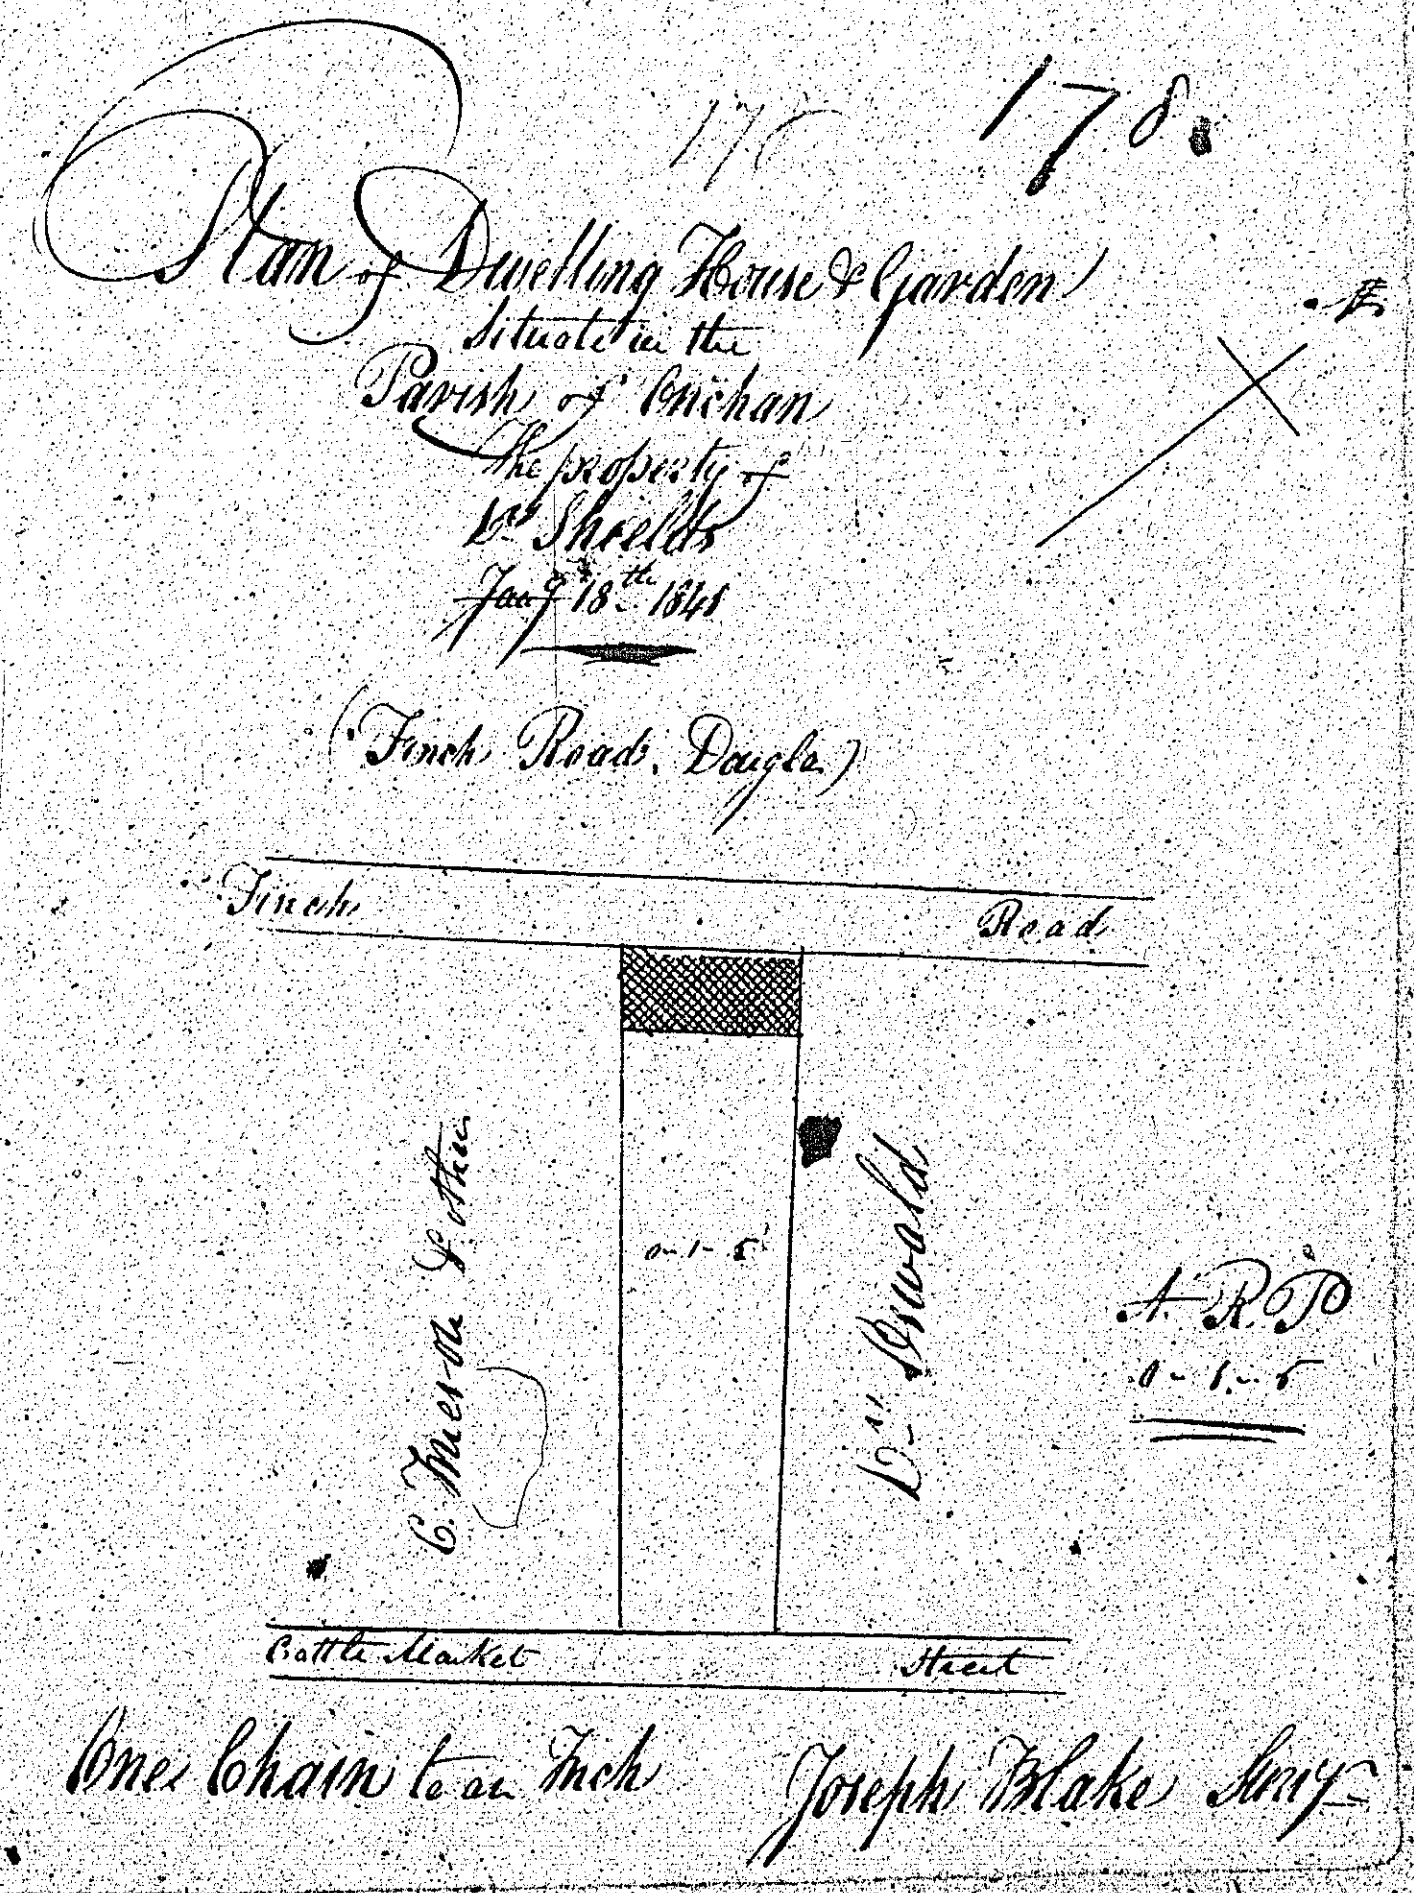 178
178
Plan of Dwelling House & Garden
Situate in the
Parish of Onchan
The property of
Dr Shields
Jany 18th 1845
(Finch Road, Douglas)
Finch Road
0-1-5
C. & others
Dr Oswald
A. R. P
0-1-5
Cattle Market Street
One Chain to an Inch
Joseph Blake Survr